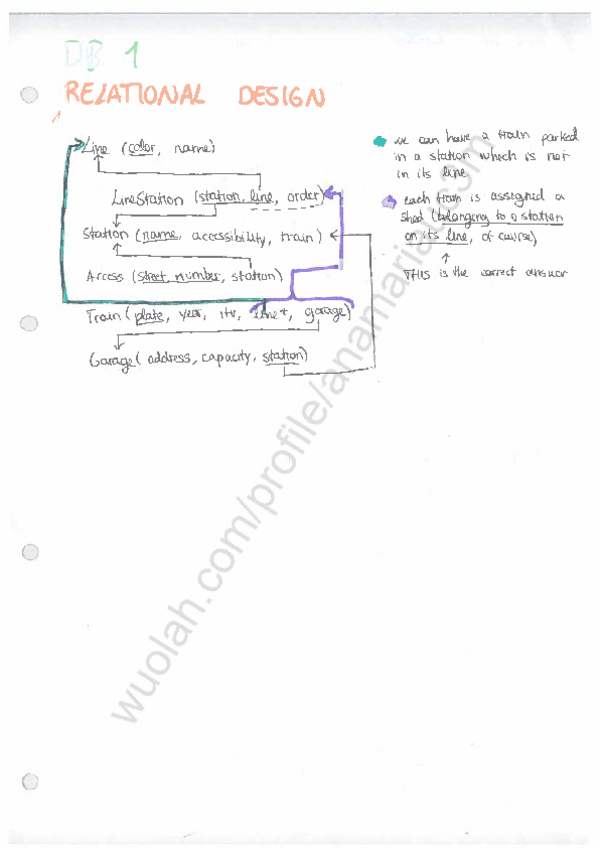 DB 1
RELATIONAL DESIGN
Line (color, name)
LineStation (station, line, order)
Station (name, accessibility, train)
Access (street, number, station)
Train (plate, year, itv, line*, garage)
Garage (address, capacity, station)
we can have a train parked
in a station which is not
in its line
each train is assigned a
shed (belonging to a station
on its line, of course)
THIS is the correct answer
wuolah.com/profile/anamariauc3m